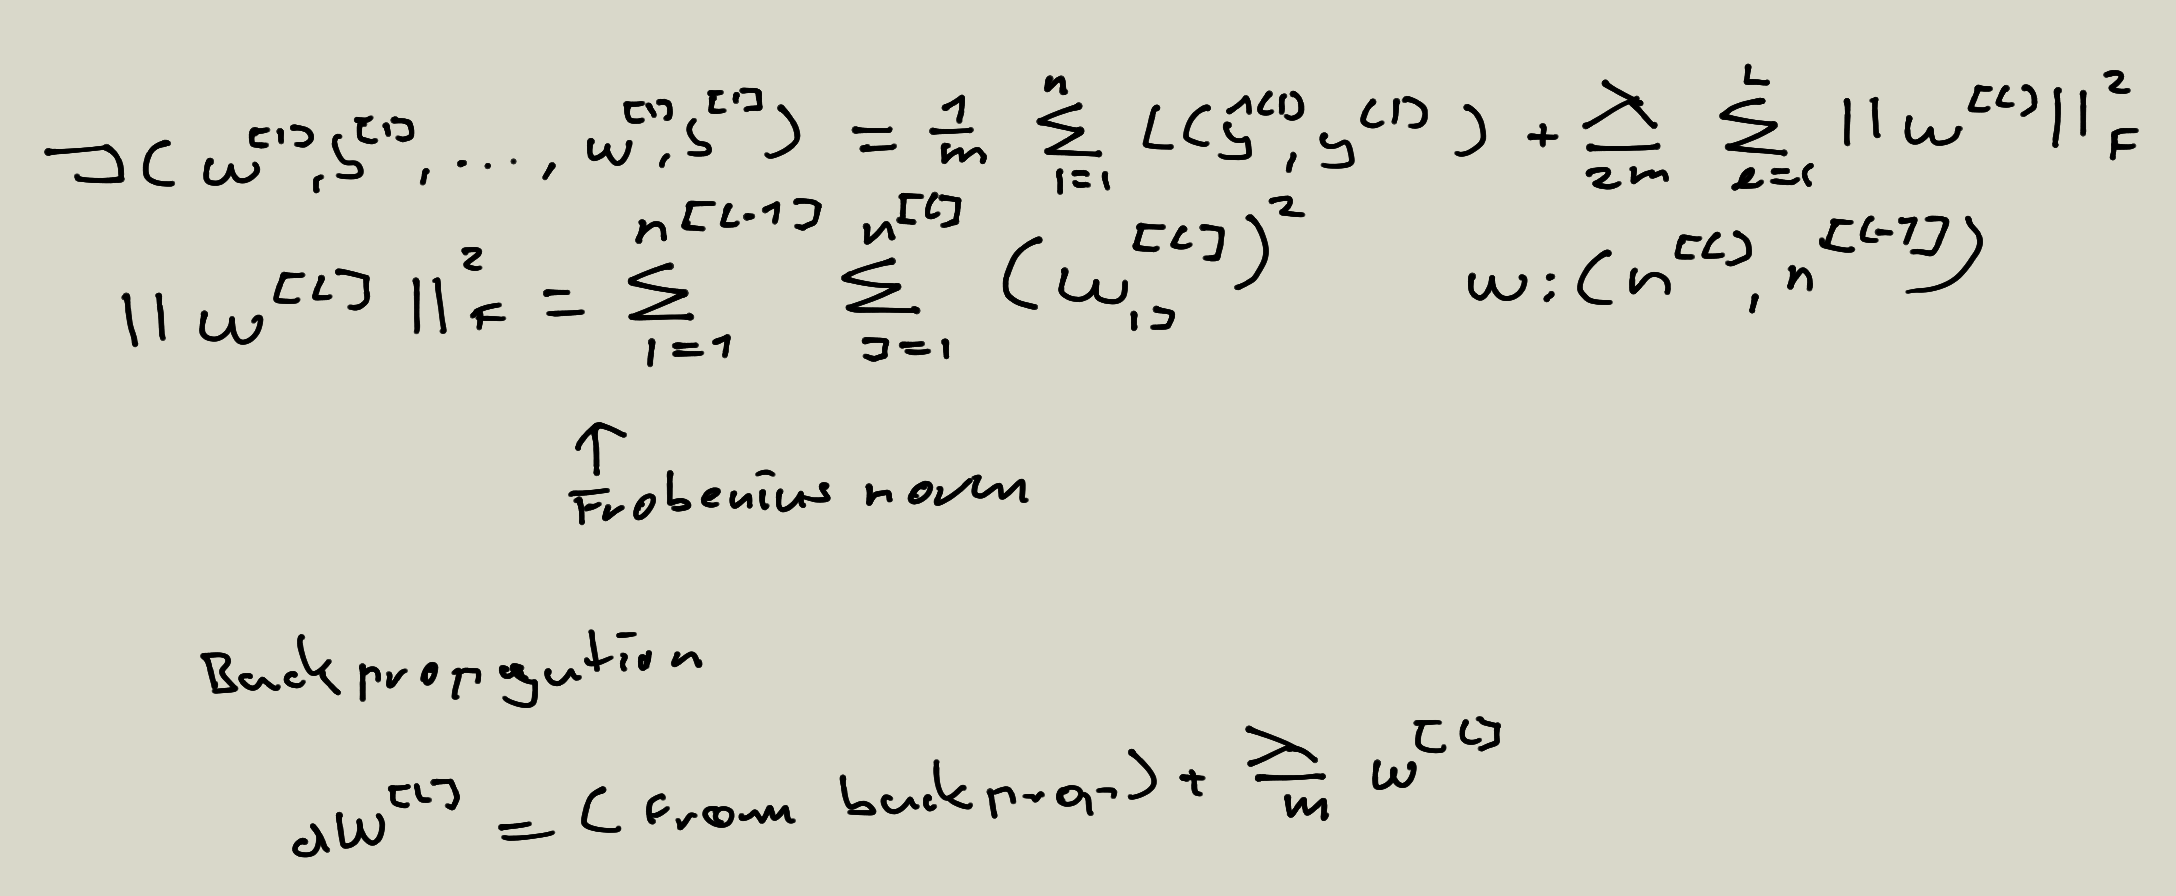 J(w^[1], b^[1], ..., w^[1], b^[1]) = 1/m Σ_{i=1}^{n} L(ŷ^(i), y^(i)) + λ/2m Σ_{l=1}^{L} ||w^[l]||²_F
||w^[l]||²_F = Σ_{i=1}^{n^[l-1]} Σ_{j=1}^{n^[l]} (w_{ij}^[l])² w: (n^[l], n^[l-1])
↑
Frobenius norm
Backpropagation
dW^[l] = (From backprop) + λ/m w^[l]